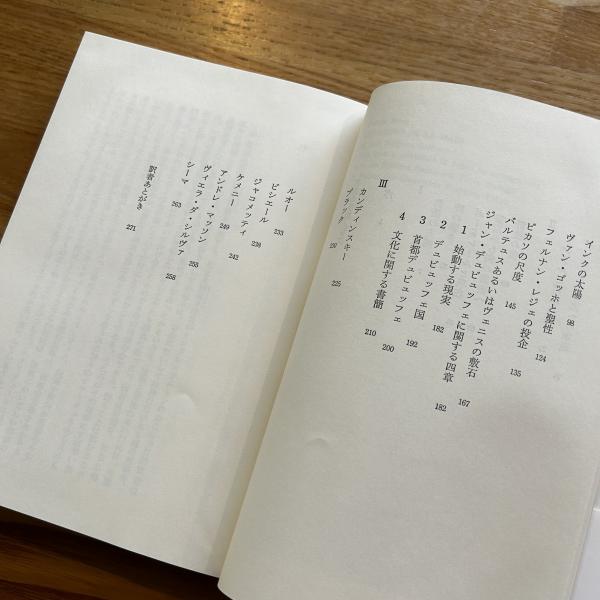 インクの太陽 98
ヴァン・ゴッホと聖性 124
フェルナン・レジェの投企 135
ピカソの尺度 145
バルテュスあるいはヴェニスの敷石 167
ジャン・デュビュッフェに関する四章 182
1 始動する現実 182
2 デュビュッフェ国 192
3 首都デュビュッフェ 200
4 文化に関する書簡 210
Ⅲ
カンディンスキー
ブラック 225
ルオー 233
ビシエール 238
ジャコメッティ 242
ケメニー 249
アンドレ・マッソン 255
ヴィエラ・ダ・シルヴァ 258
シーマ 263
訳者あとがき 271